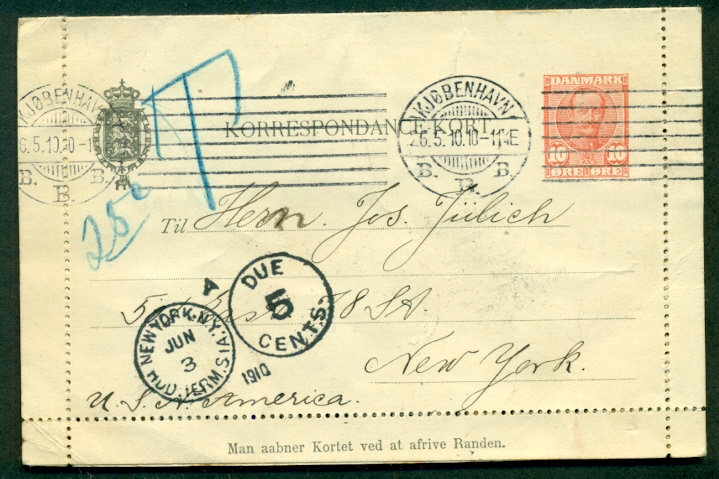 KJØBENHAVN
26.5.10.10-11E
B. B. B.
KJØBENHAVN
6.5.10.10-1
B. B. B.
DANMARK
10 10
ØRE ØRE
KORRESPONDANCE-KORT
T
25c
Til Herrn Jos. Jülich
18 St.
New York.
U. S. N. America.
DUE
5
CENTS
A
NEW YORK, N.Y.
JUN
3
HUD. TERM. STA.
1910
Man aabner Kortet ved at afrive Randen.